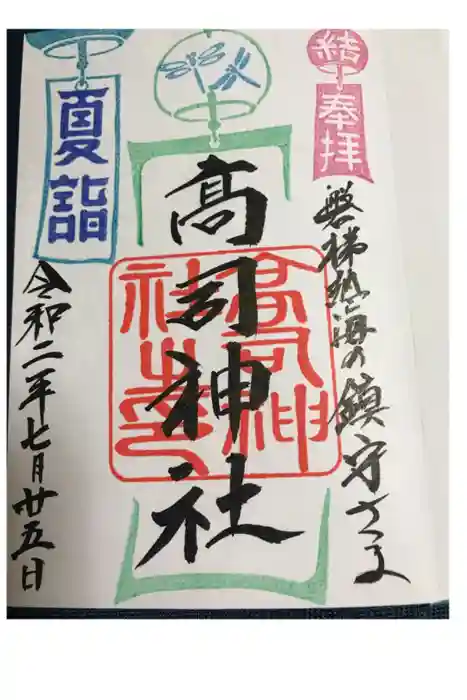 結
奉拝
磐梯熱海の鎮守さま
高司神社
高司神社之印
夏詣
令和二年七月廿五日